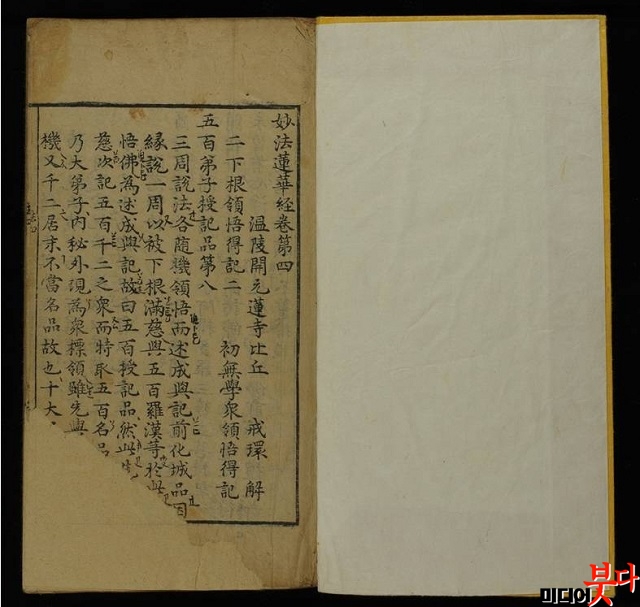 妙法蓮華経卷第四
温陵開元蓮寺比丘 戒環 解
二下根領悟得記二 初無學衆領悟得記
五百弟子授記品第八
三周說法各隨機領悟而述成與記前化城品因
緣說一周以被下根滿慈與五百羅漢等於此
悟佛為述成與記故曰五百授記品然此
慈次記五百千二之衆而特取五百名品
乃大弟子內秘外現為衆標領雖先與
機又千二居末不當名品故也十大
미디어붓다